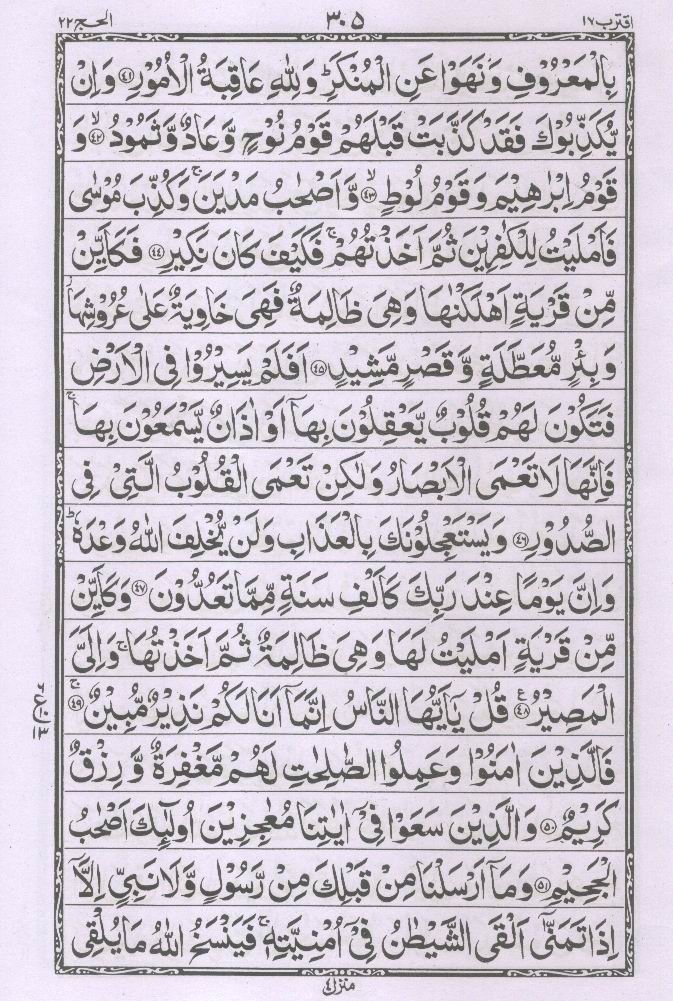 اقترب ١٧
٣٠٥
الحج ٢٢
بِالْمَعْرُوْفِ وَنَهَوْا عَنِ الْمُنْكَرِ ؕ وَلِلّٰهِ عَاقِبَةُ الْاُمُوْرِ ﴿۴۱﴾ وَاِنْ
يُّكَذِّبُوْكَ فَقَدْ كَذَّبَتْ قَبْلَهُمْ قَوْمُ نُوْحٍ وَّعَادٌ وَّثَمُوْدُ ﴿۴۲﴾ۙ وَ
قَوْمُ اِبْرٰهِيْمَ وَقَوْمُ لُوْطٍ ﴿۴۳﴾ۙ وَّاَصْحٰبُ مَدْيَنَ ۚ وَكُذِّبَ مُوْسٰى
فَاَمْلَيْتُ لِلْكٰفِرِيْنَ ثُمَّ اَخَذْتُهُمْ ۚ فَكَيْفَ كَانَ نَكِيْرِ ﴿۴۴﴾ فَكَاَيِّنْ
مِّنْ قَرْيَةٍ اَهْلَكْنٰهَا وَهِىَ ظَالِمَةٌ فَهِىَ خَاوِيَةٌ عَلٰى عُرُوْشِهَا ز
وَبِئْرٍ مُّعَطَّلَةٍ وَّقَصْرٍ مَّشِيْدٍ ﴿۴۵﴾ اَفَلَمْ يَسِيْرُوْا فِى الْاَرْضِ
فَتَكُوْنَ لَهُمْ قُلُوْبٌ يَّعْقِلُوْنَ بِهَاۤ اَوْ اٰذَانٌ يَّسْمَعُوْنَ بِهَا ۚ
فَاِنَّهَا لَا تَعْمَى الْاَبْصَارُ وَلٰكِنْ تَعْمَى الْقُلُوْبُ الَّتِىْ فِى
الصُّدُوْرِ ﴿۴۶﴾ وَيَسْتَعْجِلُوْنَكَ بِالْعَذَابِ وَلَنْ يُّخْلِفَ اللّٰهُ وَعْدَهٗ ؕ
وَاِنَّ يَوْمًا عِنْدَ رَبِّكَ كَاَلْفِ سَنَةٍ مِّمَّا تَعُدُّوْنَ ﴿۴۷﴾ وَكَاَيِّنْ
مِّنْ قَرْيَةٍ اَمْلَيْتُ لَهَا وَهِىَ ظَالِمَةٌ ثُمَّ اَخَذْتُهَا ۚ وَاِلَىَّ
الْمَصِيْرُ ﴿۴۸﴾ع قُلْ يٰۤاَيُّهَا النَّاسُ اِنَّمَاۤ اَنَا لَكُمْ نَذِيْرٌ مُّبِيْنٌ ﴿۴۹﴾ۚ
فَالَّذِيْنَ اٰمَنُوْا وَعَمِلُوا الصّٰلِحٰتِ لَهُمْ مَّغْفِرَةٌ وَّرِزْقٌ
كَرِيْمٌ ﴿۵۰﴾ وَالَّذِيْنَ سَعَوْا فِىْۤ اٰيٰتِنَا مُعٰجِزِيْنَ اُولٰٓئِكَ اَصْحٰبُ
الْجَحِيْمِ ﴿۵۱﴾ وَمَاۤ اَرْسَلْنَا مِنْ قَبْلِكَ مِنْ رَّسُوْلٍ وَّلَا نَبِىٍّ اِلَّاۤ
اِذَا تَمَنّٰٓى اَلْقَى الشَّيْطٰنُ فِىْۤ اُمْنِيَّتِهٖ ۚ فَيَنْسَخُ اللّٰهُ مَا يُلْقِى
منزل ٤